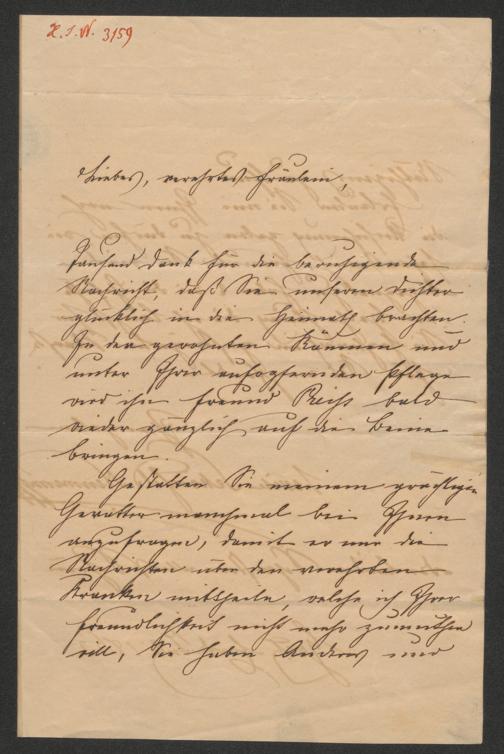 H. I. N. 3159
Liebes, verehrtes Fräulein,
Tausend Dank für die beruhigende
Nachricht, daß Sie unseren Dichter
glücklich in die Heimath brachten.
In den gewohnten Räumen und
unter Ihrer aufopfernden Pflege
wird ihn Freund bald
wieder gänzlich auf die Beine
bringen.
Gestatten Sie meinem prächtigen
Gevatter manchmal bei Ihnen
anzufragen, damit er mir die
Nachrichten über den verehrten
Kranken mittheile, welche ich Ihrer
Freundlichkeit nicht mehr zumuthen
will, Sie haben Anderes und